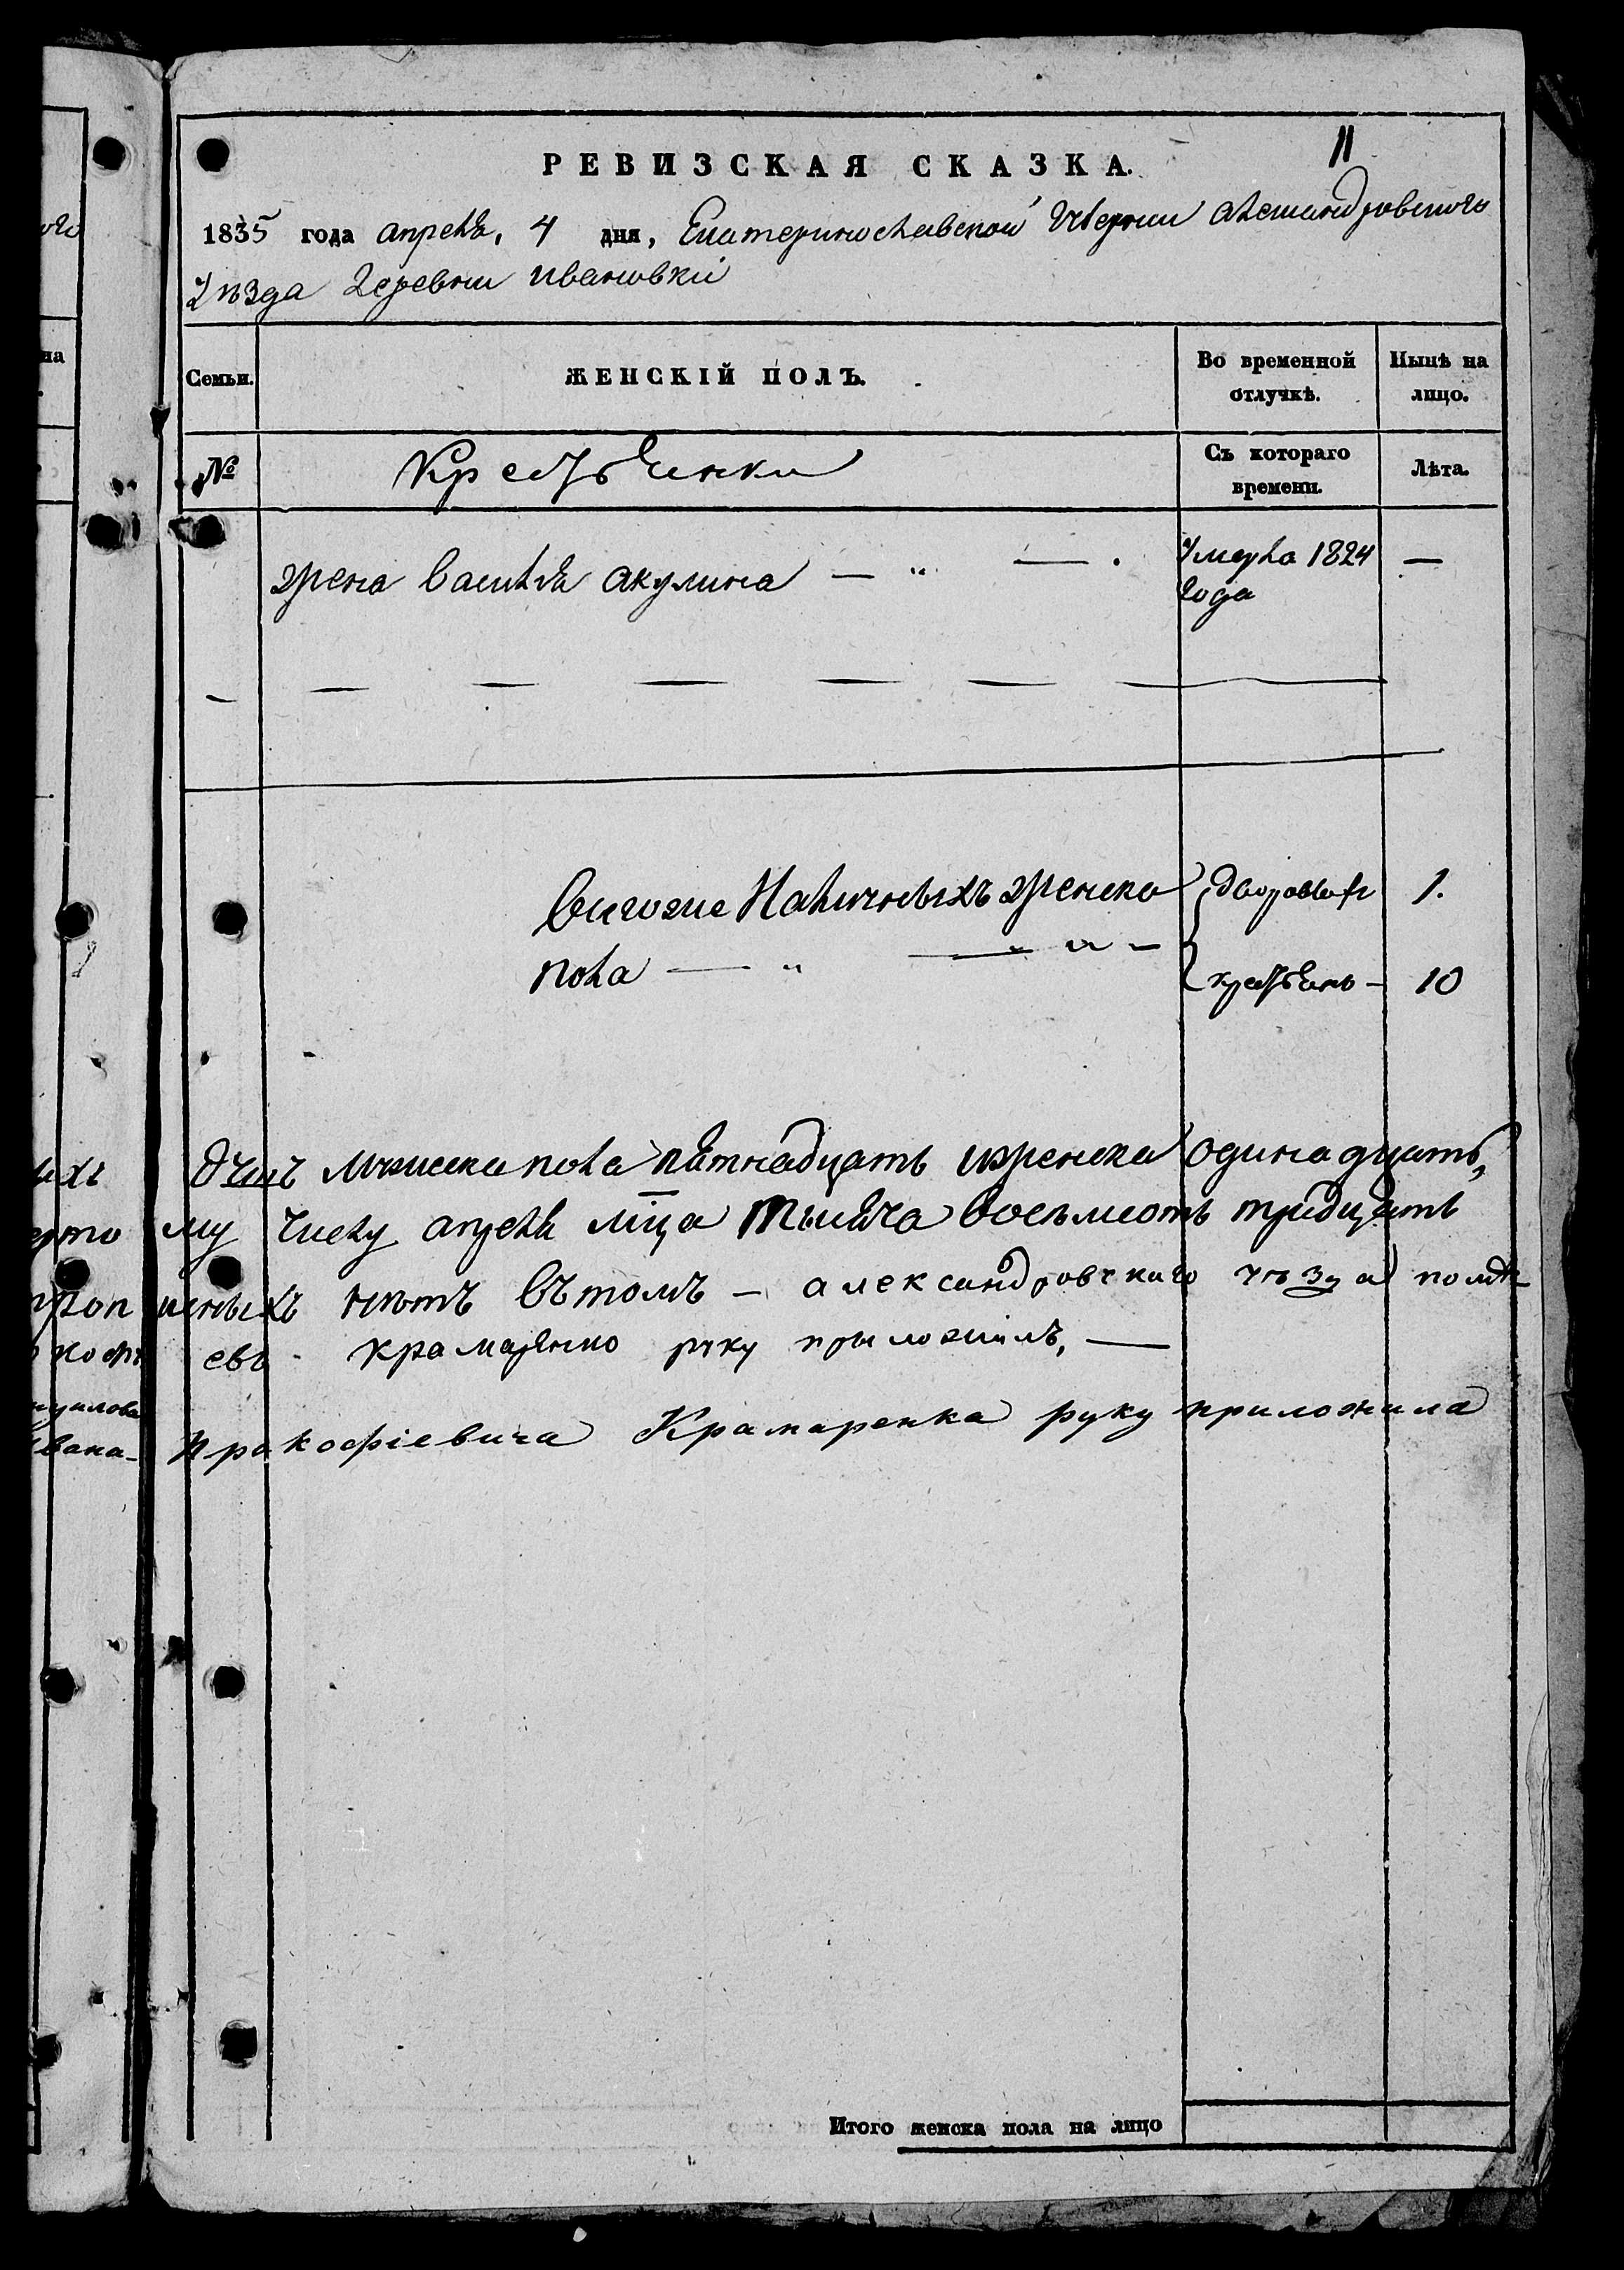 11
РЕВИЗСКАЯ СКАЗКА.
1835 года апреля, 4 дня, Екатеринославской Губернии александровскаго
уѣзда деревни ивановки
Семьи.
ЖЕНСКІЙ ПОЛЪ.
Во временной отлучкѣ.
Нынѣ на лицо.
№
Крестьянки
Съ котораго времени.
Лѣта.
жена василия акулина — " — .
умерла 1824 —
года
всего же Наличныхъ женска дворовыхъ 1.
пола — " — " — крестьянъ — 10
душъ мужеска пола пятнадцать женска одинадцать,
му числу апреля мца тысяча восемьсотъ тридцать
ныхъ нѣтъ вътомъ — александровскаго уѣзда помѣ
евъ крамаренко руку приложилъ, —
Прокофіевича Крамаренка руку приложила
Итого женска пола на лицо